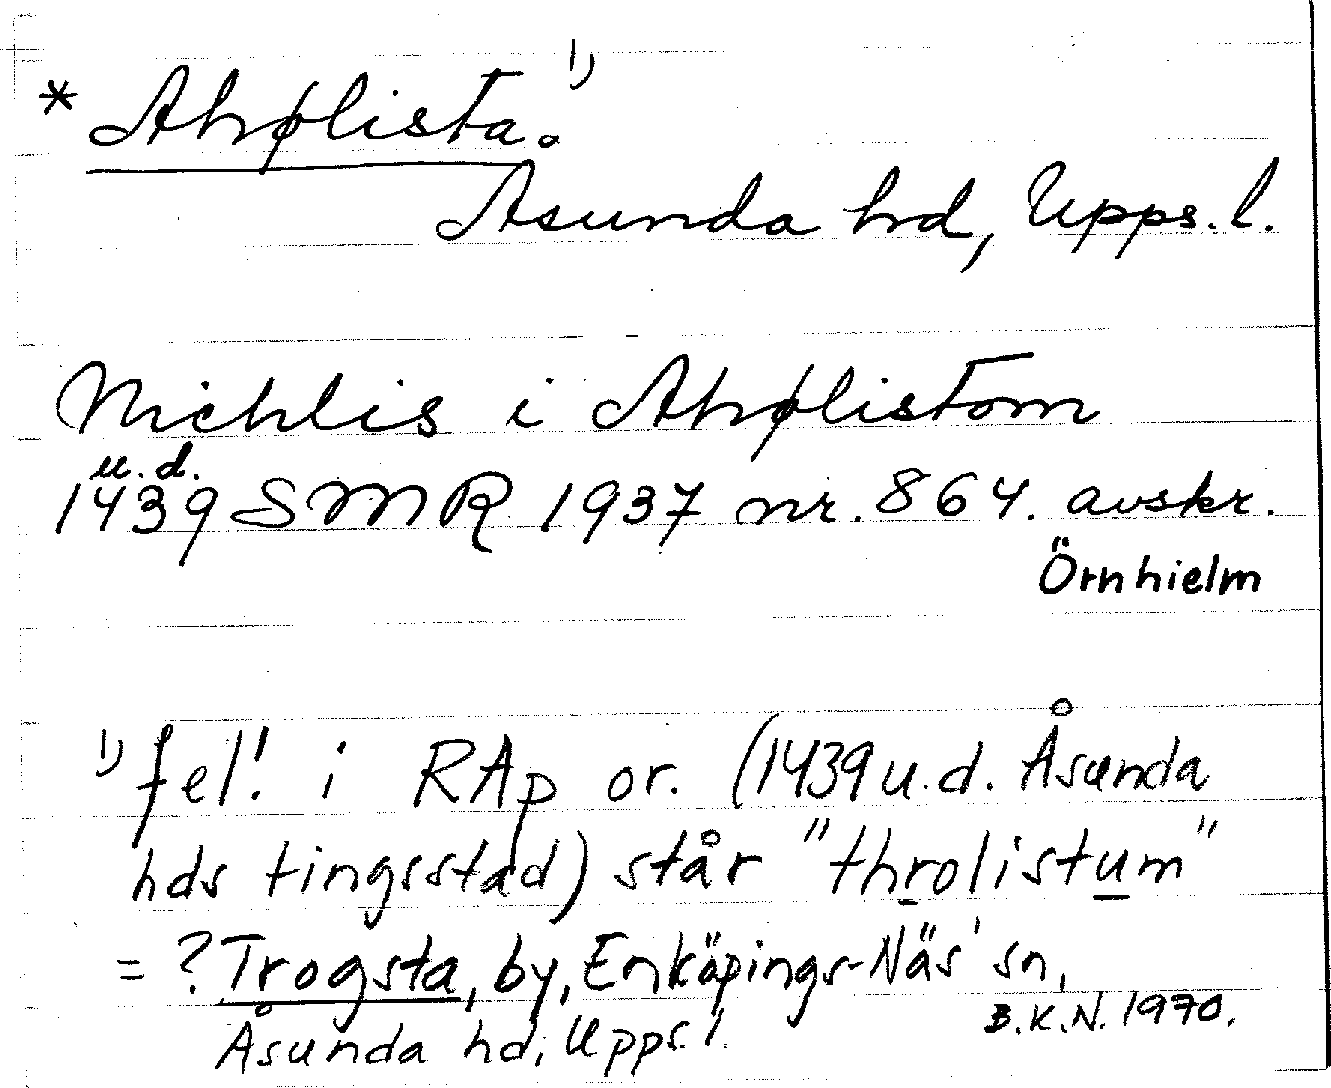 * Ahrølista. 1)
Åsunda hd, Upps. l.
Nichlis i Ahrølistom
u. d.
1439 SMR 1937 nr. 864. avskr.
Örnhielm
1) fel! i RAp or. (1439 u.d. Åsunda
hds tingsstad) står "throlistum"
= ? Trogsta, by, Enköpings-Näs' sn,
Åsunda hd, Upps. l.
B.K.N. 1970.